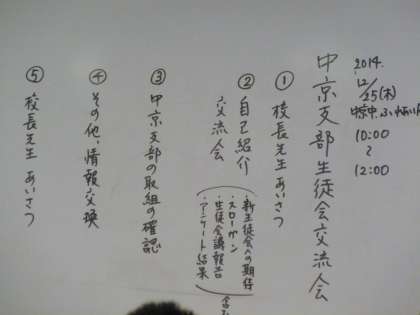 2014.
12/25(木)
10:00
~
12:00
中京支部生徒会交流会
① 校長先生 あいさつ
② 自己紹介
交流会
・新生徒会への期待
・スローガン
・生徒会議報告
・アンケート結果
③ 中京支部の取組の確認
④ その他、情報交換
⑤ 校長先生 あいさつ